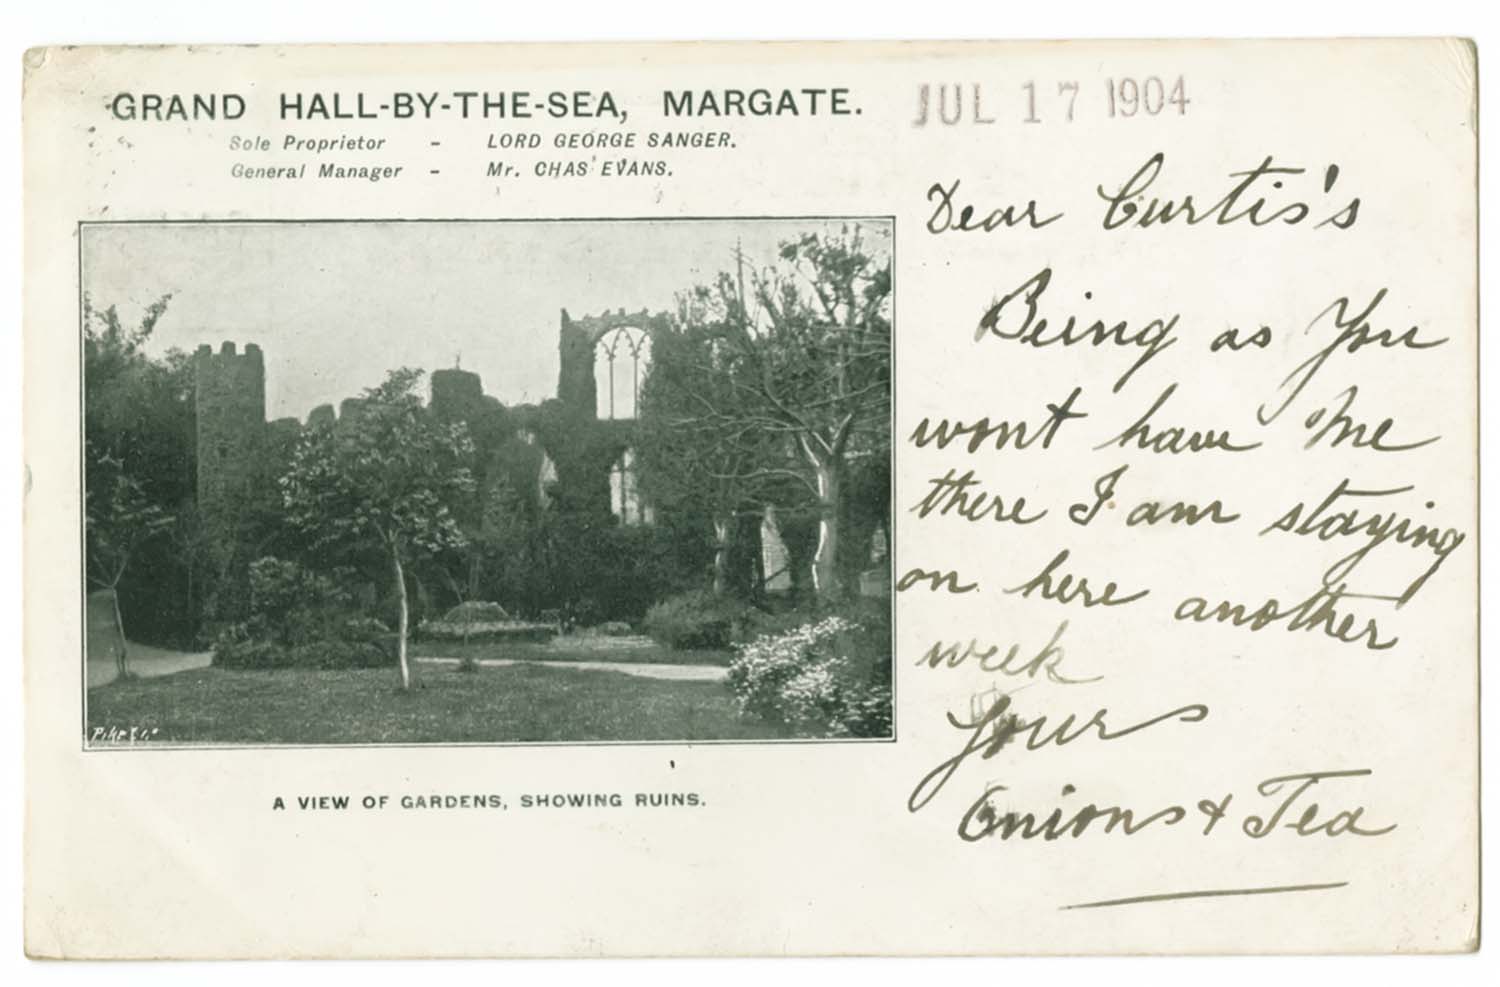 GRAND HALL-BY-THE-SEA, MARGATE.
Sole Proprietor - LORD GEORGE SANGER.
General Manager - Mr. CHAS EVANS.
JUL 17 1904
Dear Curtis's
Being as You
wont have Me
there I am staying
on here another
week
Yours
Onions & Tea
A VIEW OF GARDENS, SHOWING RUINS.